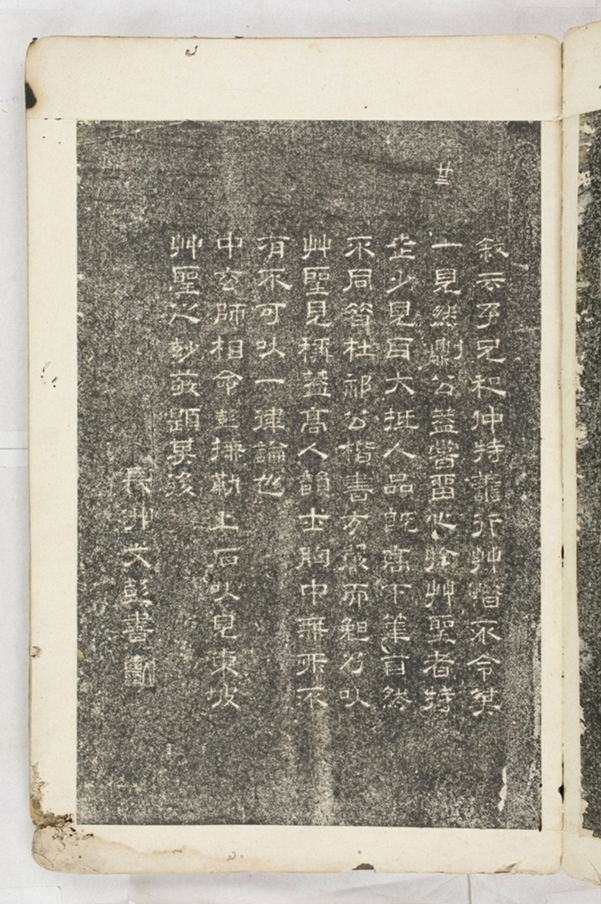 廿三
叙云子兄和仲特行艸不令其
一見然則公蓋嘗留心於艸聖者特
世少見耳大抵人品既高下筆自然
不同昔杜祁公楷書方嚴而晚乃以
艸聖見稱蓋高人韻士胸中無所不
有不可以一律論也
中玄師相命彭摹勒上石以見東坡
艸聖之妙敬題其後
長洲文彭書